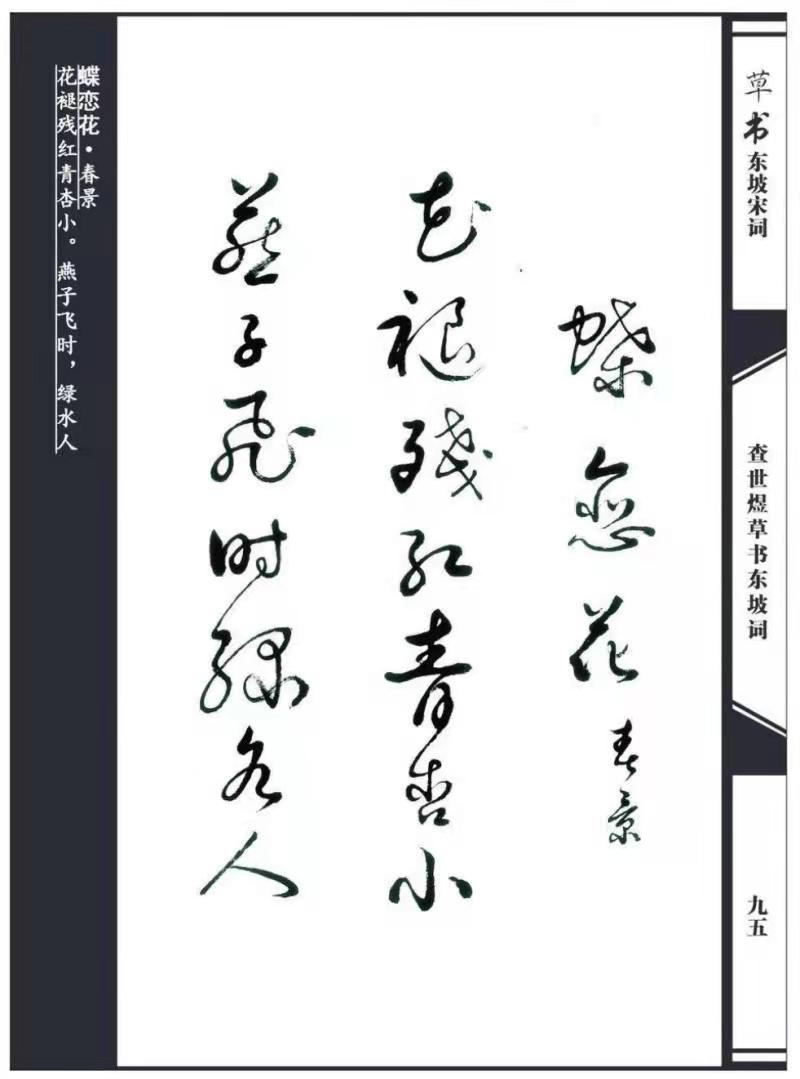 草书东坡宋词
查世煜草书东坡词
九五
蝶恋花春景
花褪残红青杏小
燕子飞时绿水人
蝶恋花·春景
花褪残红青杏小。燕子飞时，绿水人